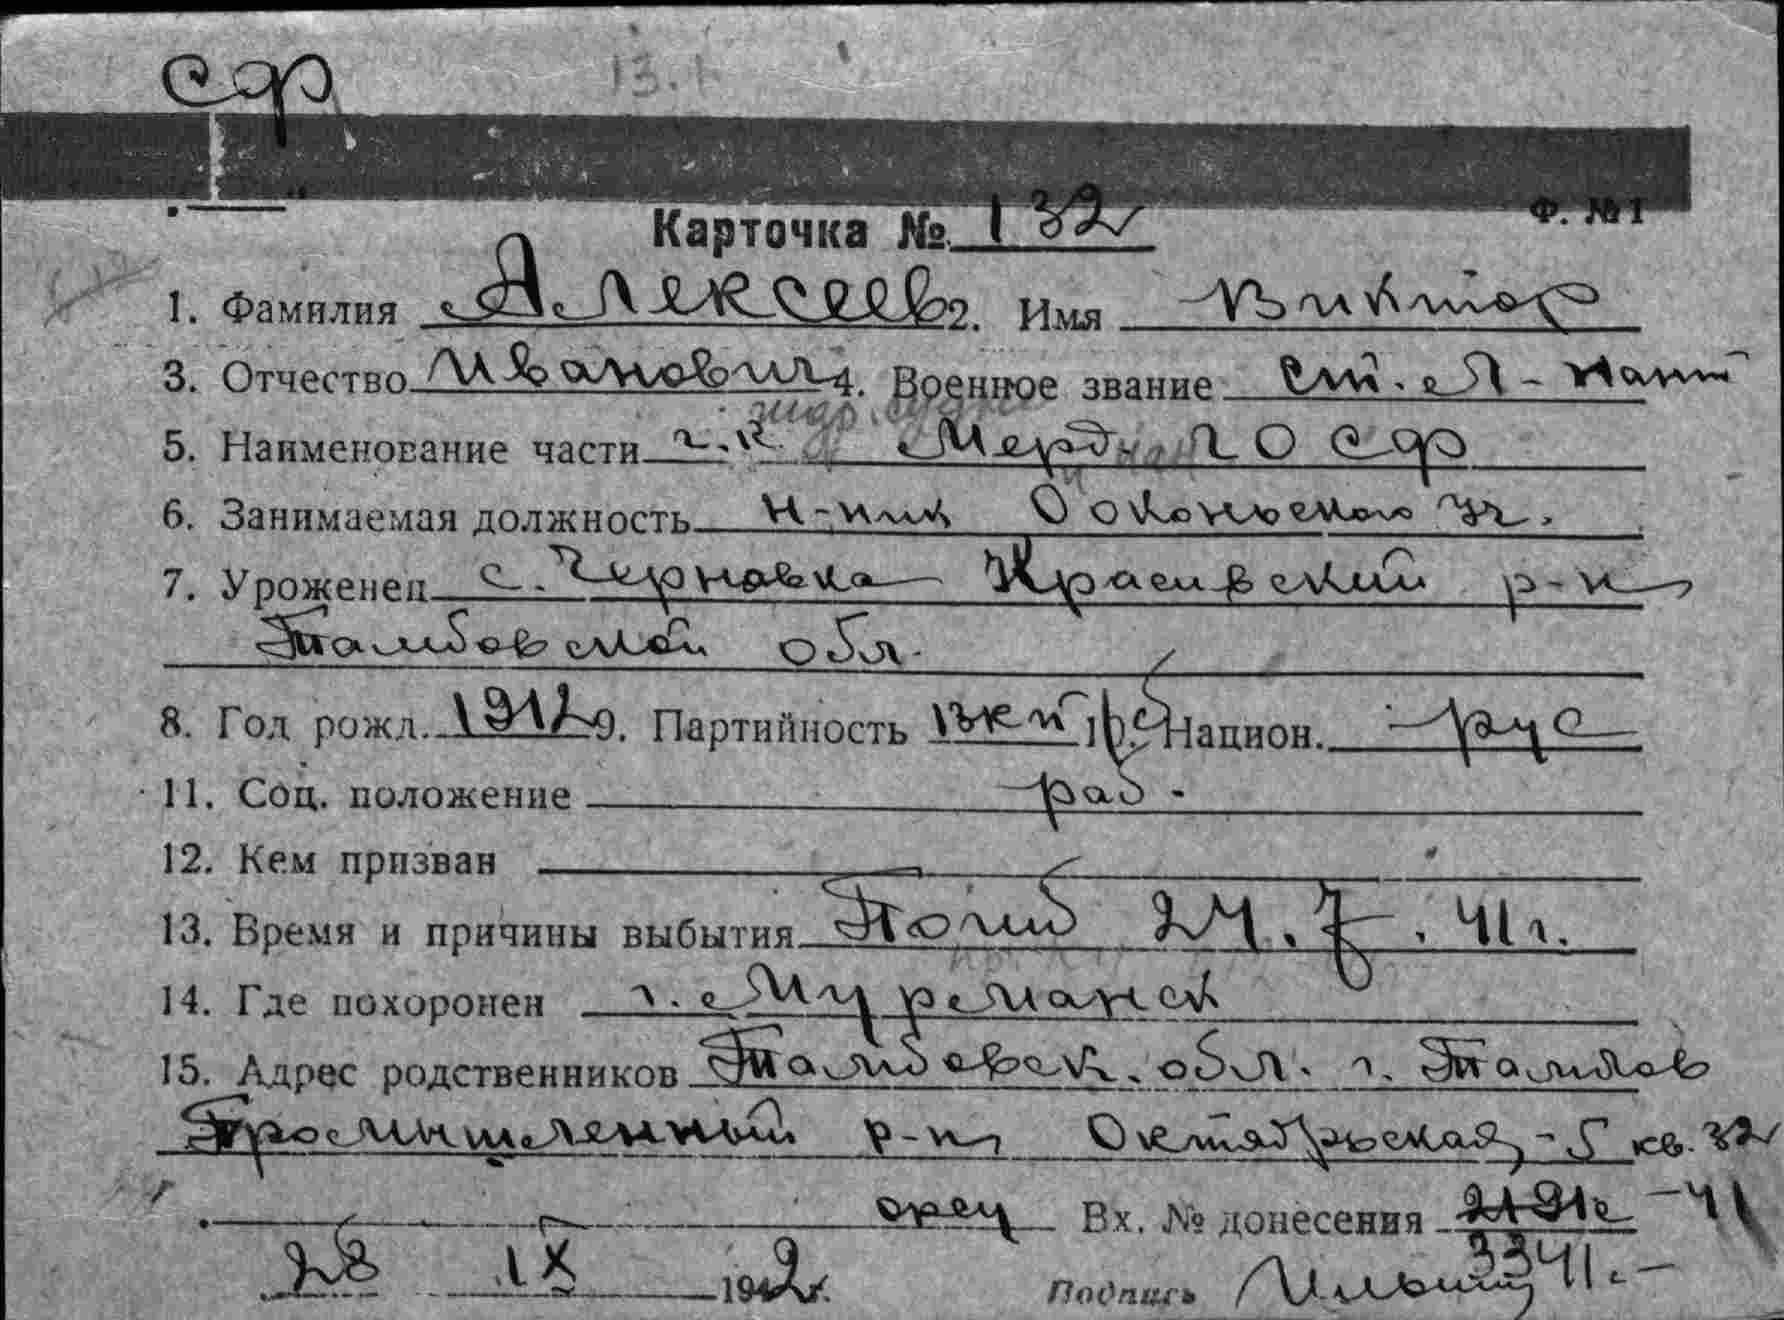 сф
13.1
Ф. №1
Карточка № 132
1. Фамилия Алексеев 2. Имя Виктор
3. Отчество Иванович 4. Военное звание ст. л-нант
5. Наименование части г.к. Мерд. ГО СФ
6. Занимаемая должность н-ник уч.
7. Уроженец с. Черновка р-н
Тамбовской обл.
8. Год рожд. 1912 9. Партийность вкп/б 10. Национ. рус
11. Соц. положение раб.
12. Кем призван
13. Время и причины выбытия Погиб 24.7.41г.
14. Где похоронен г. Мурманск
15. Адрес родственников Тамбовск. обл. г. Тамбов
Промышленный р-н, Октябрьская, -5 кв. 32
отец Вх. № донесения 2191с -41
28 IX 1942г. Подпись 3341с.